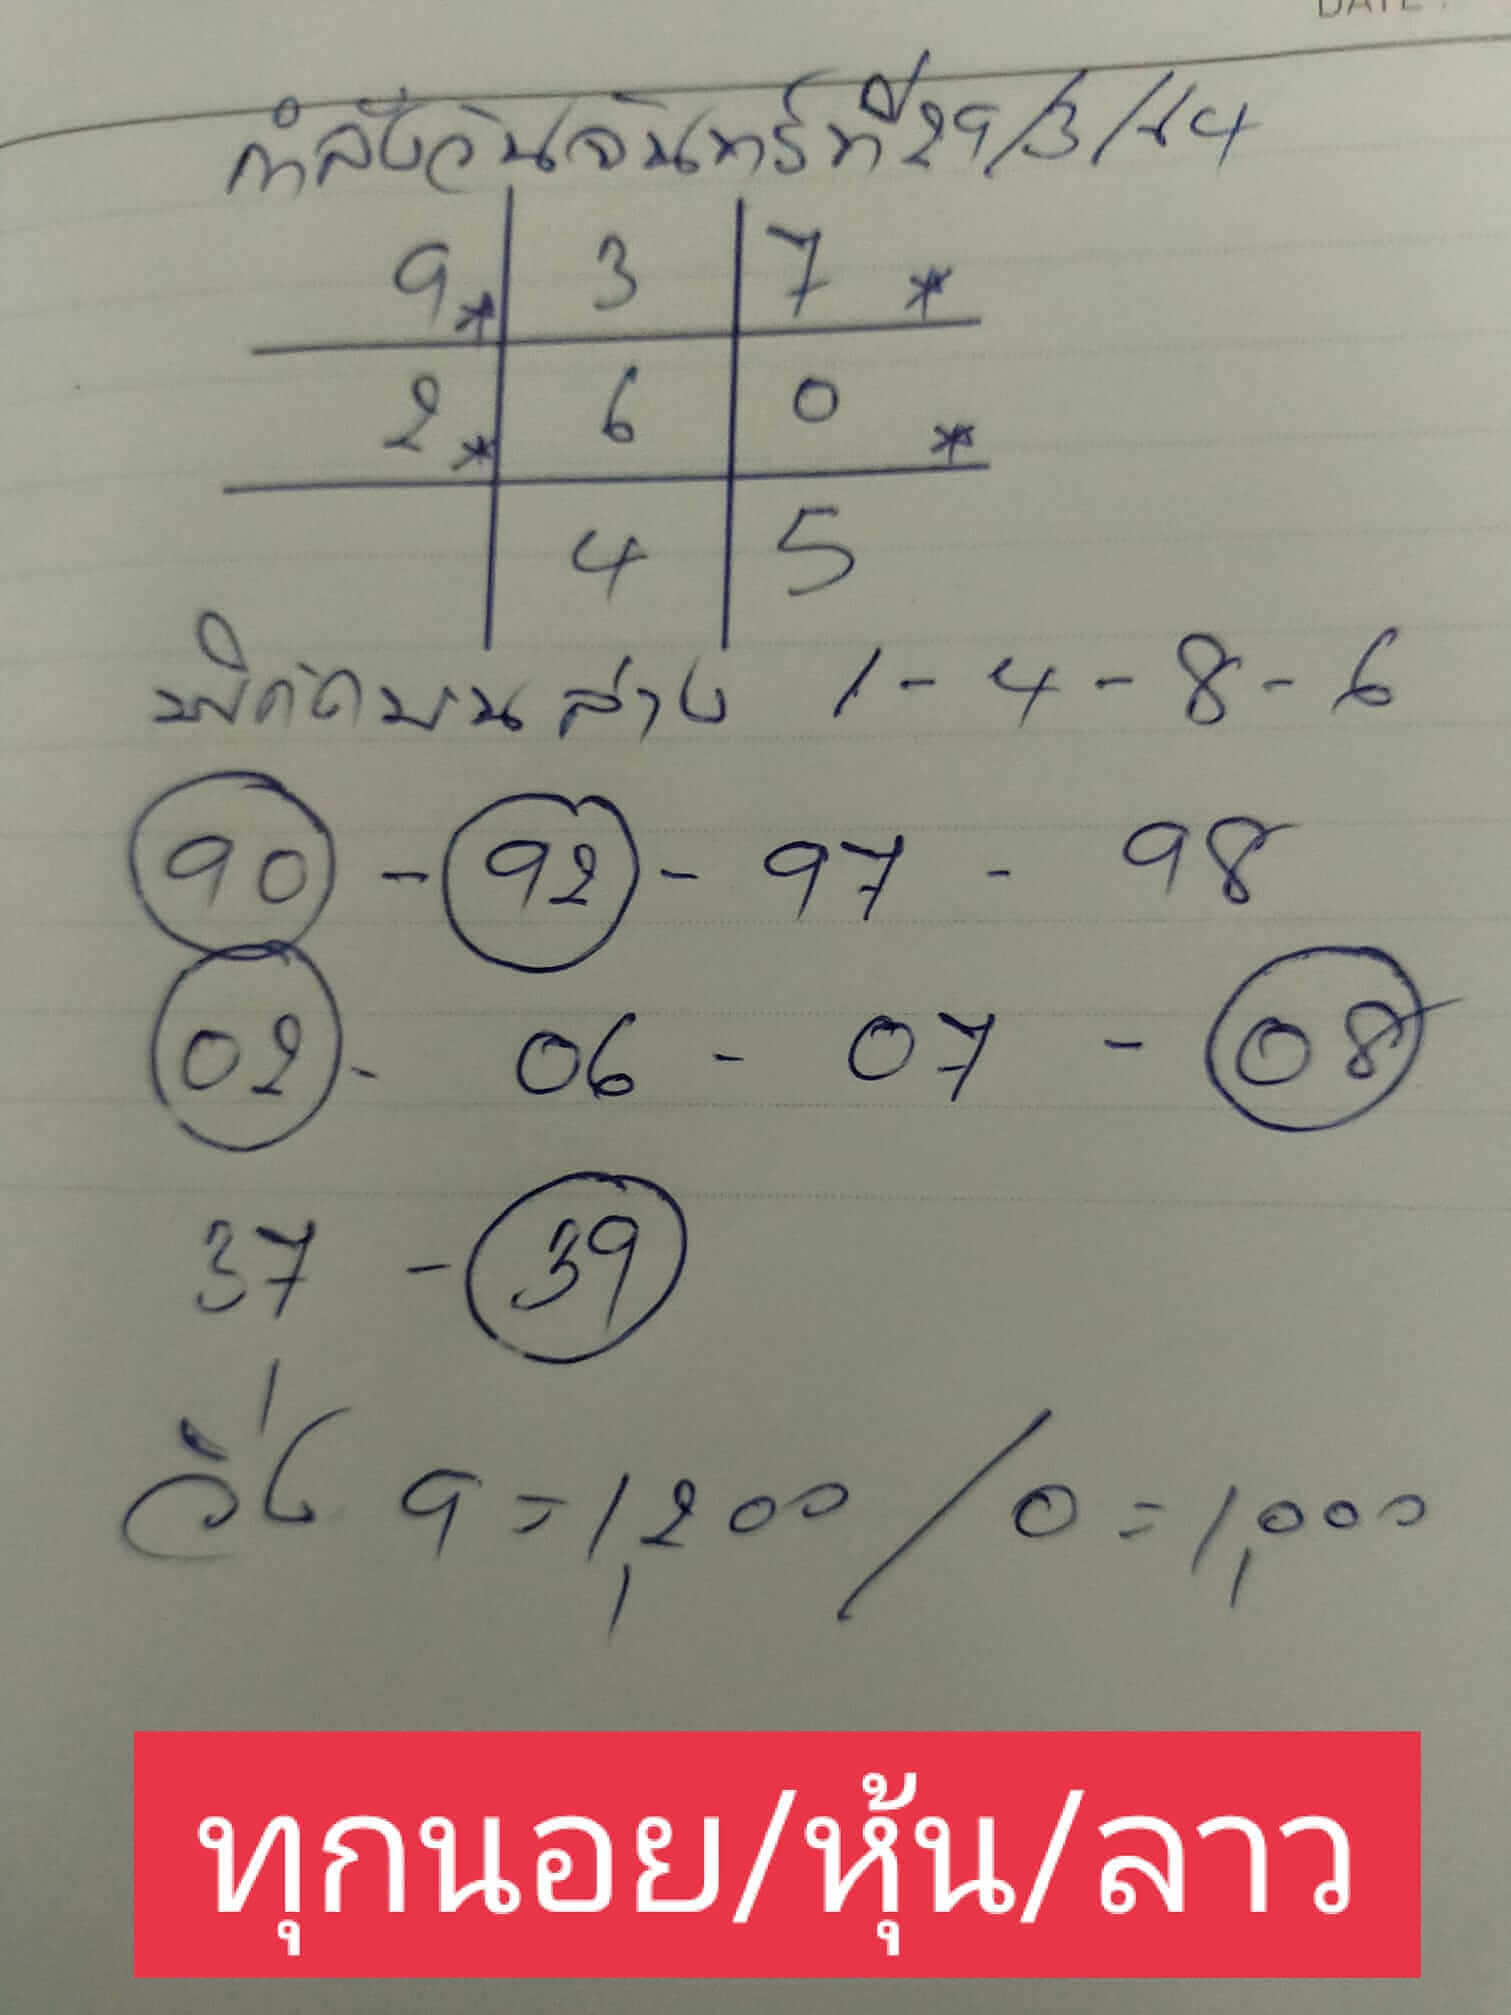 DATE :
กำลังวันจันทร์ที่ 29/3/64
9* 3 7 *
2* 6 0 *
4 5
พิกัดบน ล่าง 1-4-8-6
90 - 92 - 97 - 98
02 - 06 - 07 - 08
37 - 39
วิ่ง 9 = 1,200 / 0 = 1,000
ทุกนอย/หุ้น/ลาว